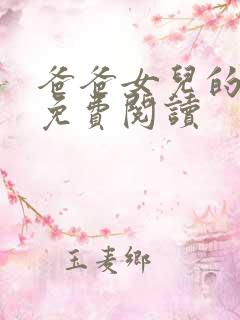 爸爸女兒的
免費閱讀
玉麦鄉